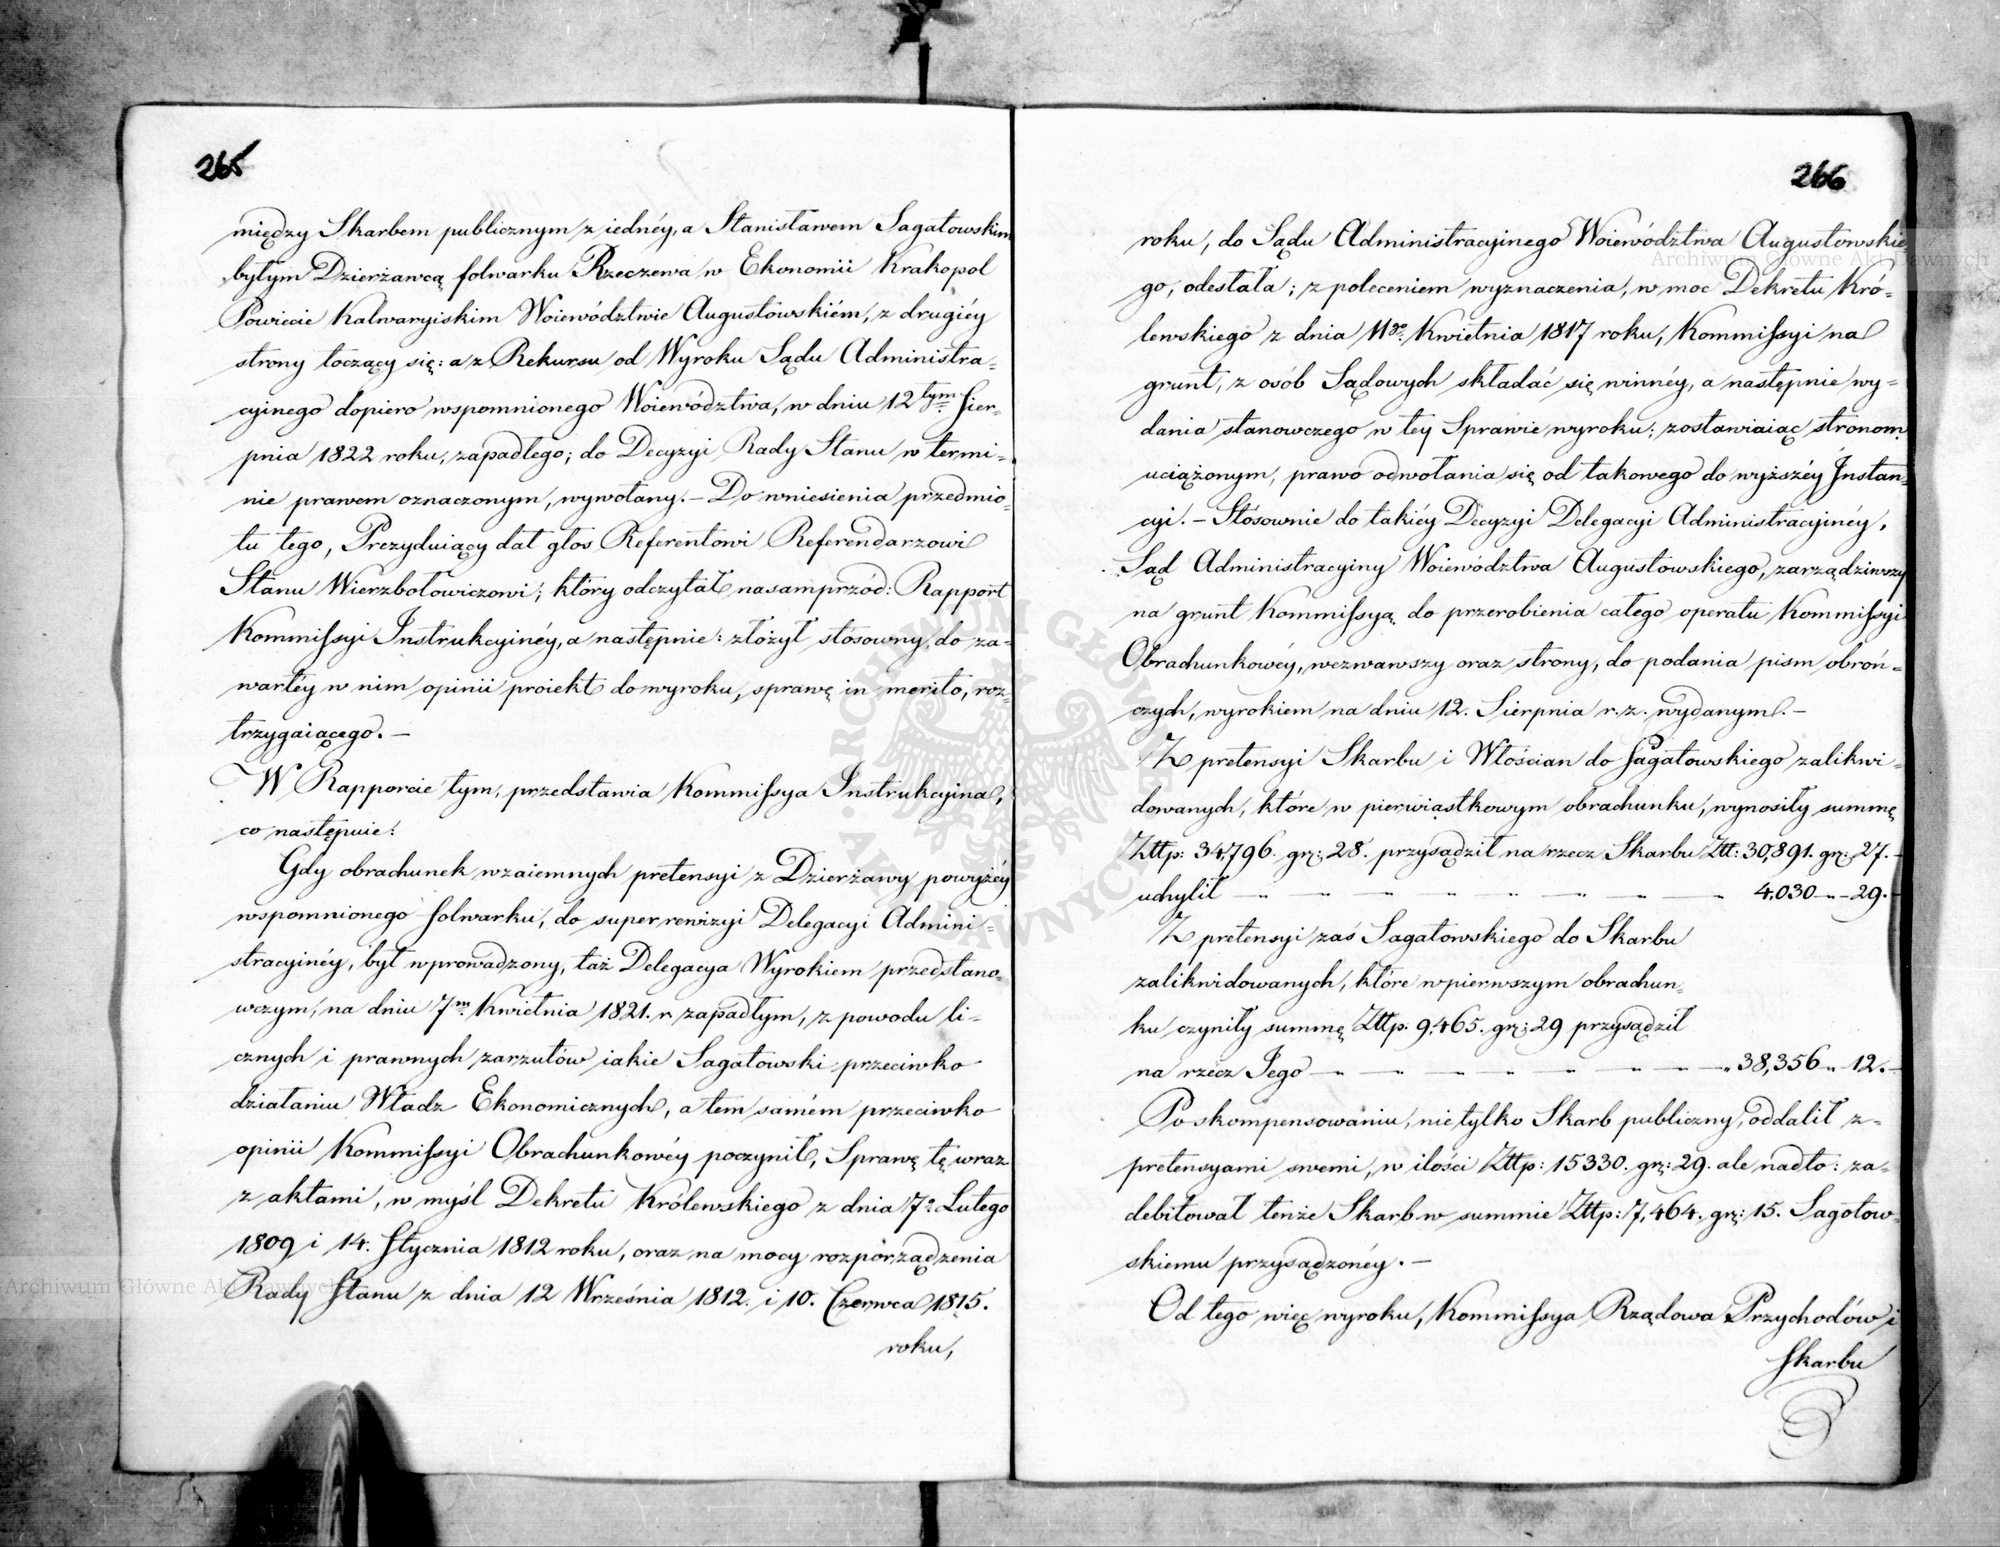 265
między Skarbem publicznym z iednéy, a Stanisławem Sagatowskim
byłym Dzierżawcą folwarku Rzeczewa w Ekonomii Krakopol
Powiecie Kalwaryiskim Woiewództwie Augustowskiém, z drugiéy
strony toczący się: a z Rekursu od Wyroku Sądu Administra-
cyinego dopiero wspomnionego Woiewództwa, w dniu 12tym Sier-
pnia 1822 roku, zapadłego; do Decyzyi Rady Stanu w termi-
nie prawem oznaczonym, wywołany. – Do wniesienia przedmio-
tu tego, Prezyduiący dał głos Referentowi Referendarzowi
Stanu Wierzbołowiczowi; który odczytał nasamprzód: Rapport
Kommissyi Instrukcyinéy, a następnie: złożył stósowny, do za-
wartéy w nim opinii proiekt do wyroku, sprawę in merito, roz-
trzygaiącego. –
W Rapporcie tym, przedstawia Kommissya Instrukcyina,
co następuie:
Gdy obrachunek wzaiemnych pretensyi z Dzierżawy powyżéy
wspomnionego folwarku, do superrewizyi Delegacyi Admini-
stracyinéy, był wprowadzony, taż Delegacya Wyrokiem przedstano-
wczym, na dniu 7m Kwietnia 1821. r. zapadłym, z powodu li-
cznych i prawnych zarzutów iakie Sagatowski przeciwko
działaniu Władz Ekonomicznych, a tem samém przeciwko
opinii Kommissyi Obrachunkowéy poczynił, Sprawę tę wraz
z aktami, w myśl Dekretu Królewskiego z dnia 7o Lutego
1809 i 14. Stycznia 1812 roku, oraz na mocy rozporządzenia
Rady Stanu z dnia 12 Września 1812. i 10. Czerwca 1815.
roku,
266
roku, do Sądu Administracyinego Woiewództwa Augustowskie
go, odesłała; z poleceniem wyznaczenia, w moc Dekretu Kró-
lewskiego z dnia 11go Kwietnia 1817 roku, Kommissyi na
grunt, z osób Sądowych składać się winnéy, a następnie wy-
dania stanowczego w tey Sprawie wyroku; zostawiaiąc stronom
uciążonym, prawo odwołania się od takowego do wyższéy Instan-
cyi. – Stósownie do takiéy Decyzyi Delegacyi Administracyinéy,
Sąd Administracyiny Woiewództwa Augustowskiego, zarządziwszy
na grunt Kommissyą, do przerobienia całego operatu Kommissyi
Obrachunkowéy, wezwawszy oraz strony, do podania pism obroń-
czych, wyrokiem na dniu 12. Sierpnia r. z. wydanym. –
Z pretensyi Skarbu i Włościan do Sagatowskiego zalikwi-
dowanych, które w pierwiastkowym obrachunku, wynosiły summę
Złtp: 34,796. gr: 28. przysądził na rzecz Skarbu Złt: 30,891. gr: 27. -
uchylił — „ „ „ „ „ „ „ — 4,030 - „ - 29. -
Z pretensyi zaś Sagatowskiego do Skarbu
zalikwidowanych, które w pierwszym obrachun-
ku czyniły summę Złtp. 9,465. gr: 29 przysądził
na rzecz Jego — „ „ „ „ „ „ — „ 38,356 „ 12. -
Po skompensowaniu, nie tylko Skarb publiczny, oddalił z-
pretensyami swemi, w ilości Złtp: 15330. gr: 29. ale nadto: za-
debitował tenże Skarb w summie Złtp: 7,464. gr: 15. Sagatow-
skiemu przysądzonéy. –
Od tego więc wyroku, Kommissya Rządowa Przychodów i
Skarbu
Archiwum Główne Akt Dawnych
Archiwum Główne Akt Dawnych
ARCHIWUM GŁÓWNE AKT DAWNYCH